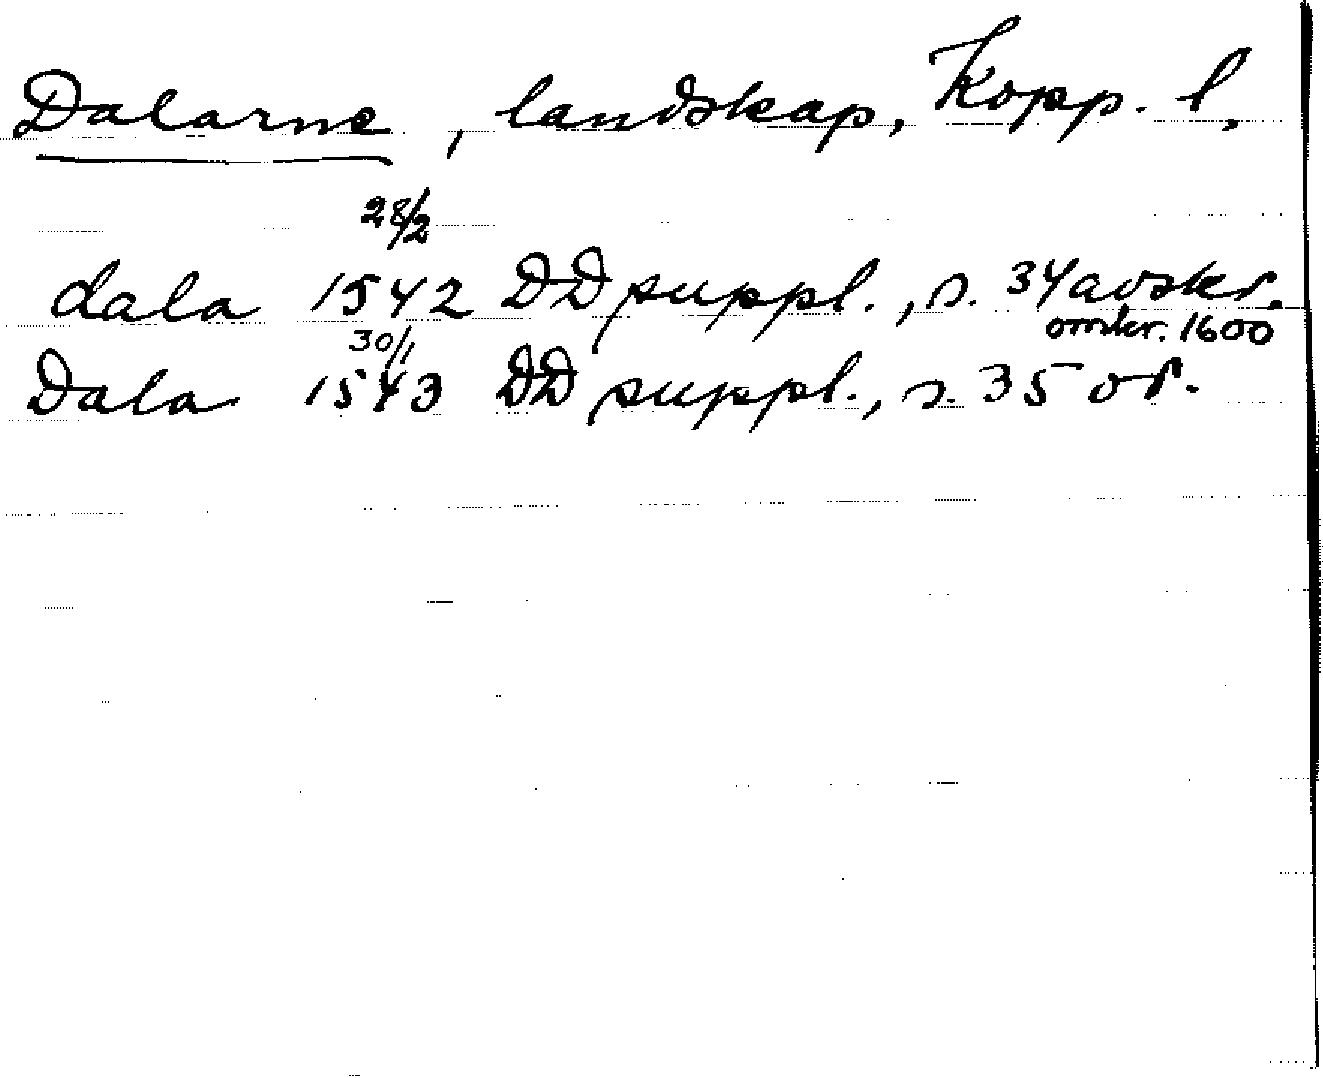 Dalarne, landskap, Kopp. l.
28/2
dala 1542 DD suppl., s. 34 avskr.
omkr. 1600
30/1
Dala 1543 DD suppl., s. 35 or.